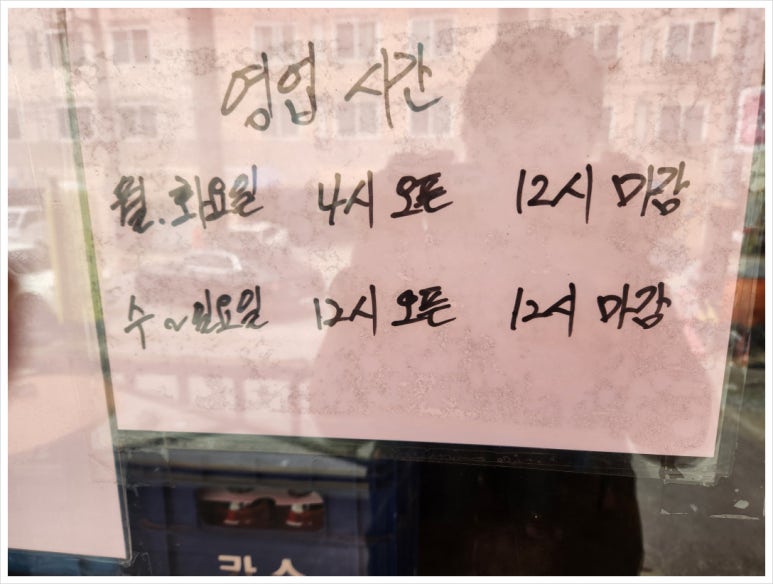 영업 시간
월.화요일 4시 오픈 12시 마감
수~일요일 12시 오픈 12시 마감